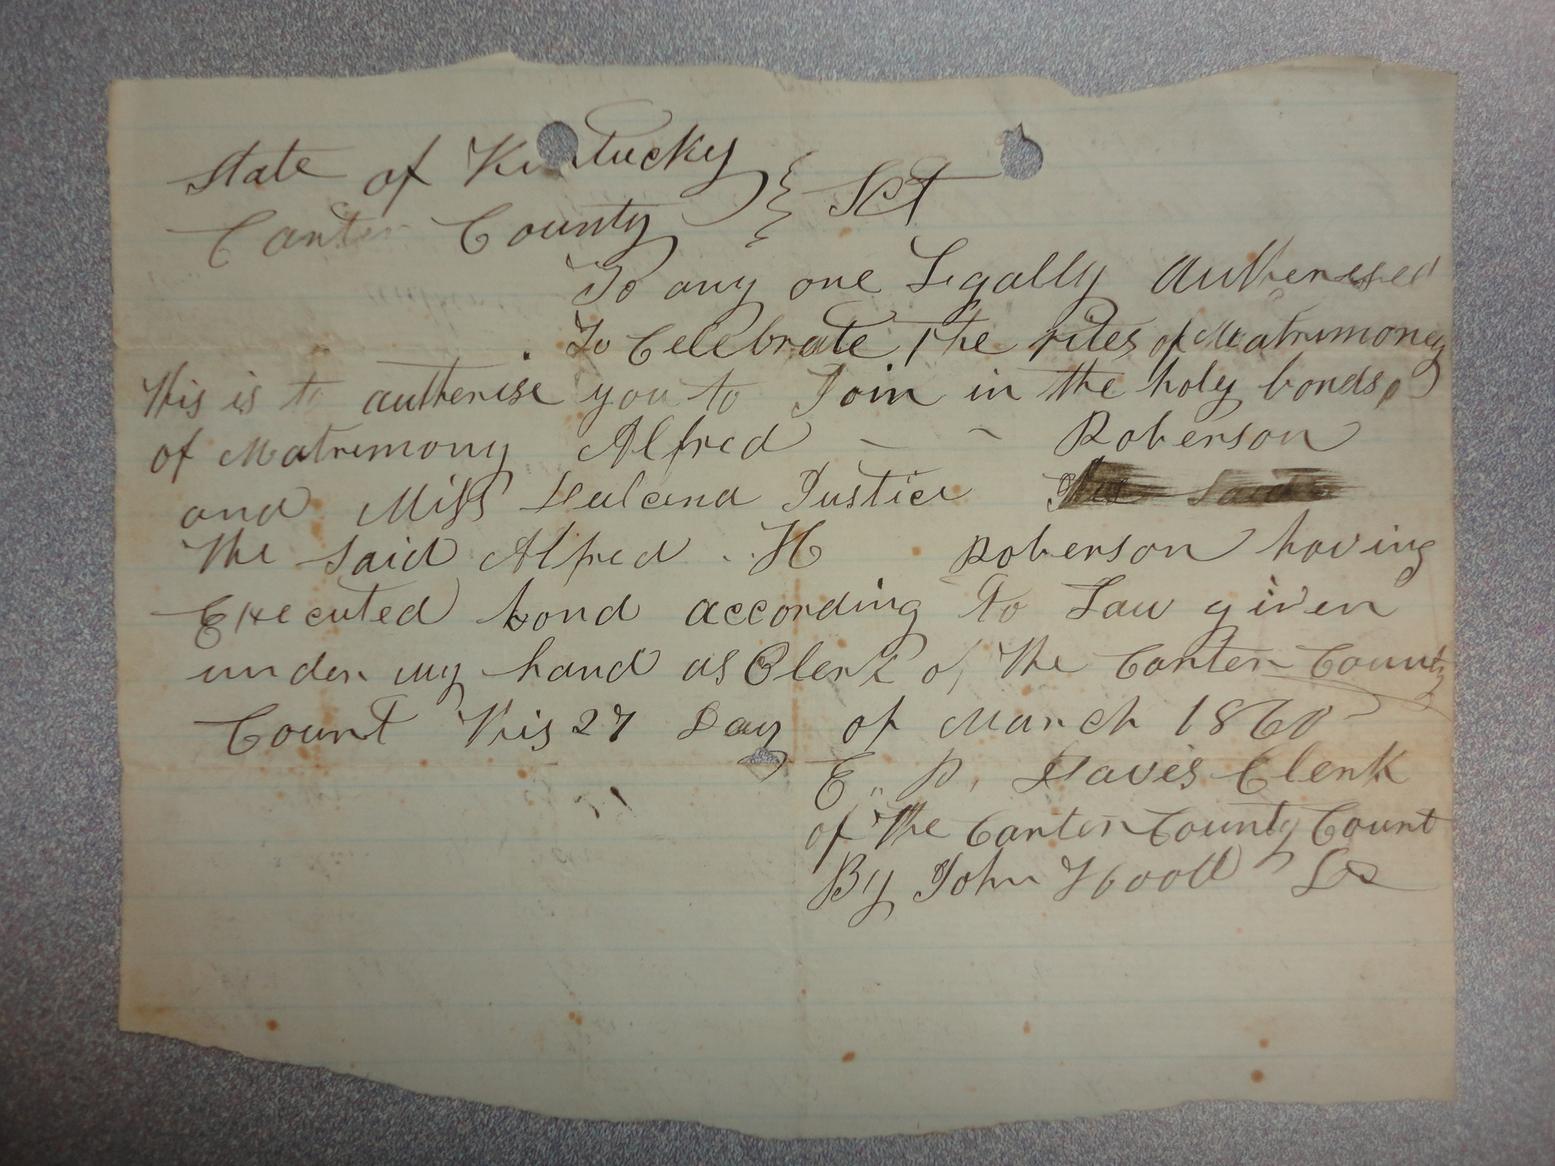 State of Kentucky } Sct
Carter County
To any one Legally Autherised
To Celebrate the rites of Matrimoney
this is to autherise you to Join in the holy bonds
of Matrimony Alfred - - Roberson
and Miss Dulcena Justice
The said Alfred . H Roberson having
Executed bond according to Law given
under my hand as Clerk of the Carter County
Court this 27 Day of March 1860
E .. D. Davis Clerk
of the Carter County Court
By John Hood